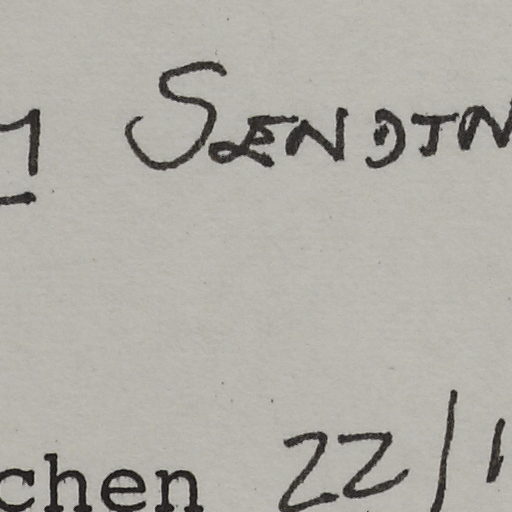 SENDIN
chen 22/1